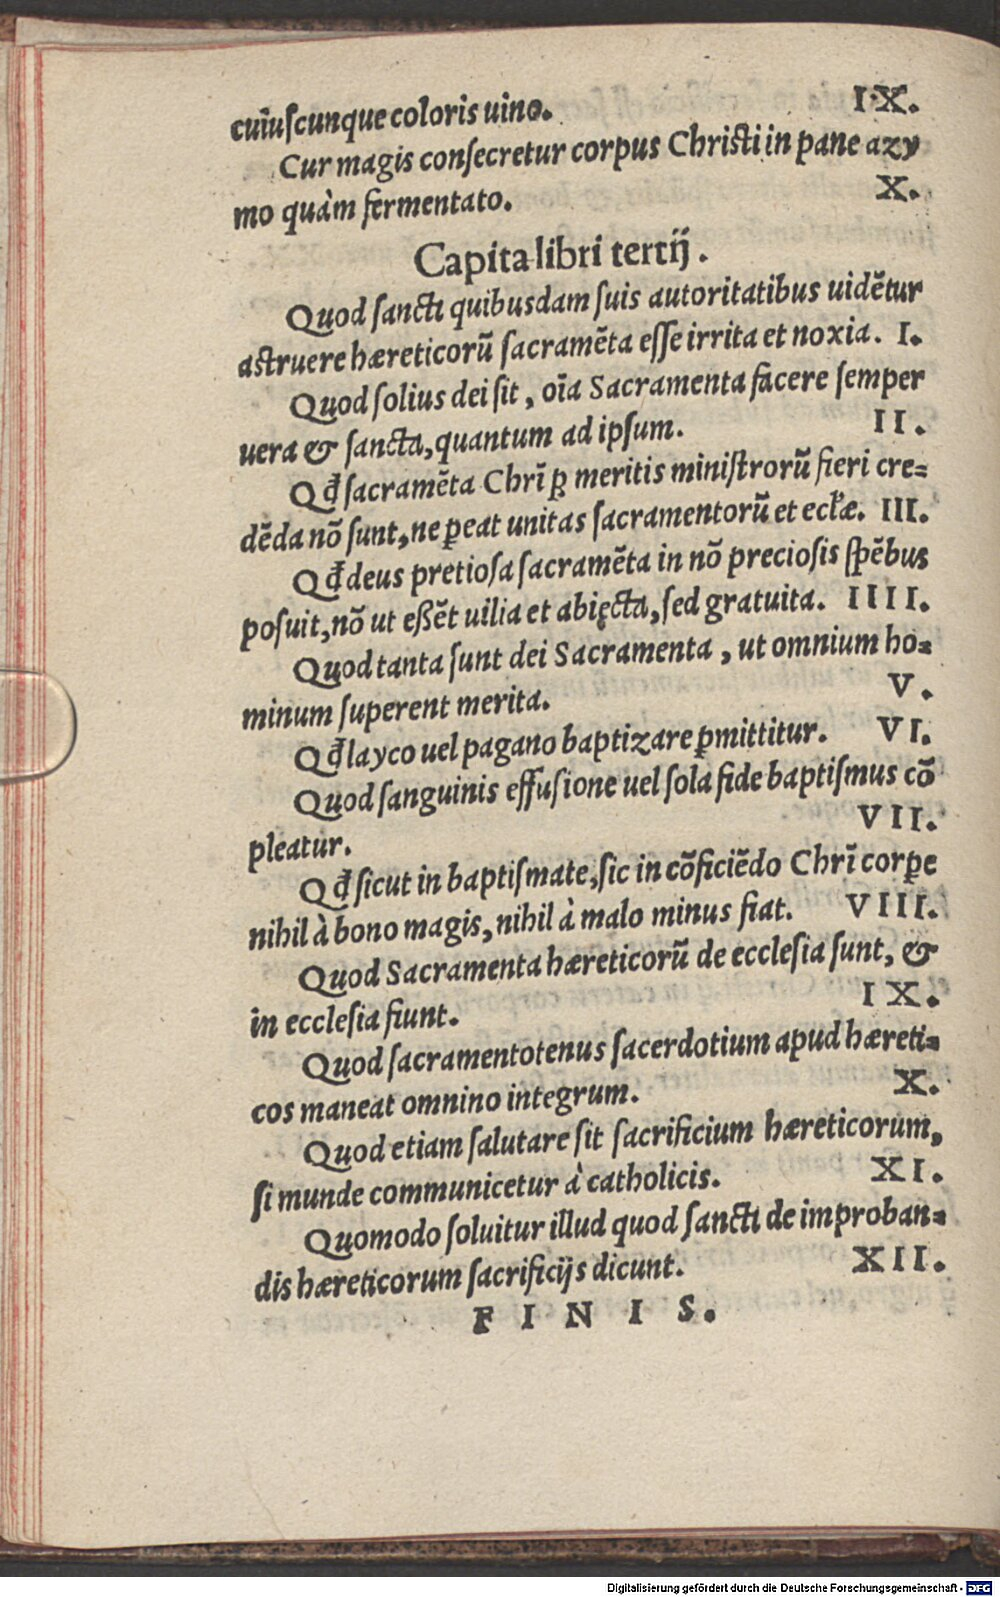 cuiuſcunque coloris uino. IX.
Cur magis conſecretur corpus Chriſti in pane azy
mo quàm fermentato. X.
Capita libri tertij.
Quod ſancti quibusdam ſuis autoritatibus uidẽtur
aſtruere hæreticorũ ſacramẽta eſſe irrita et noxia. I.
Quod ſolius dei ſit, oĩa Sacramenta facere ſemper
uera & ſancta, quantum ad ipſum. II.
Qđ ſacramẽta Chrĩ ꝑ meritis miniſtrorũ fieri cre=
dẽda nõ ſunt, ne ꝑeat unitas ſacramentorũ et eclæ. III.
Qđ deus pretioſa ſacramẽta in nõ precioſis ſpẽbus
poſuit, nõ ut eßẽt uilia et abięcta, ſed gratuita. IIII.
Quod tanta ſunt dei Sacramenta, ut omnium ho=
minum ſuperent merita. V.
Qđ layco uel pagano baptizare ꝑmittitur. VI.
Quod ſanguinis effuſione uel ſola fide baptiſmus cõ
pleatur. VII.
Qđ ſicut in baptiſmate, ſic in cõficiẽdo Chrĩ corꝑe
nihil à bono magis, nihil à malo minus fiat. VIII.
Quod Sacramenta hæreticorũ de eccleſia ſunt, &
in eccleſia fiunt. IX.
Quod ſacramentotenus ſacerdotium apud hæreti=
cos maneat omnino integrum. X.
Quod etiam ſalutare ſit ſacrificium hæreticorum,
ſi munde communicetur à catholicis. XI.
Quomodo ſoluitur illud quod ſancti de improban=
dis hæreticorum ſacrificijs dicunt. XII.
FINIS.
Digitalisierung gefördert durch die Deutsche Forschungsgemeinschaft - DFG